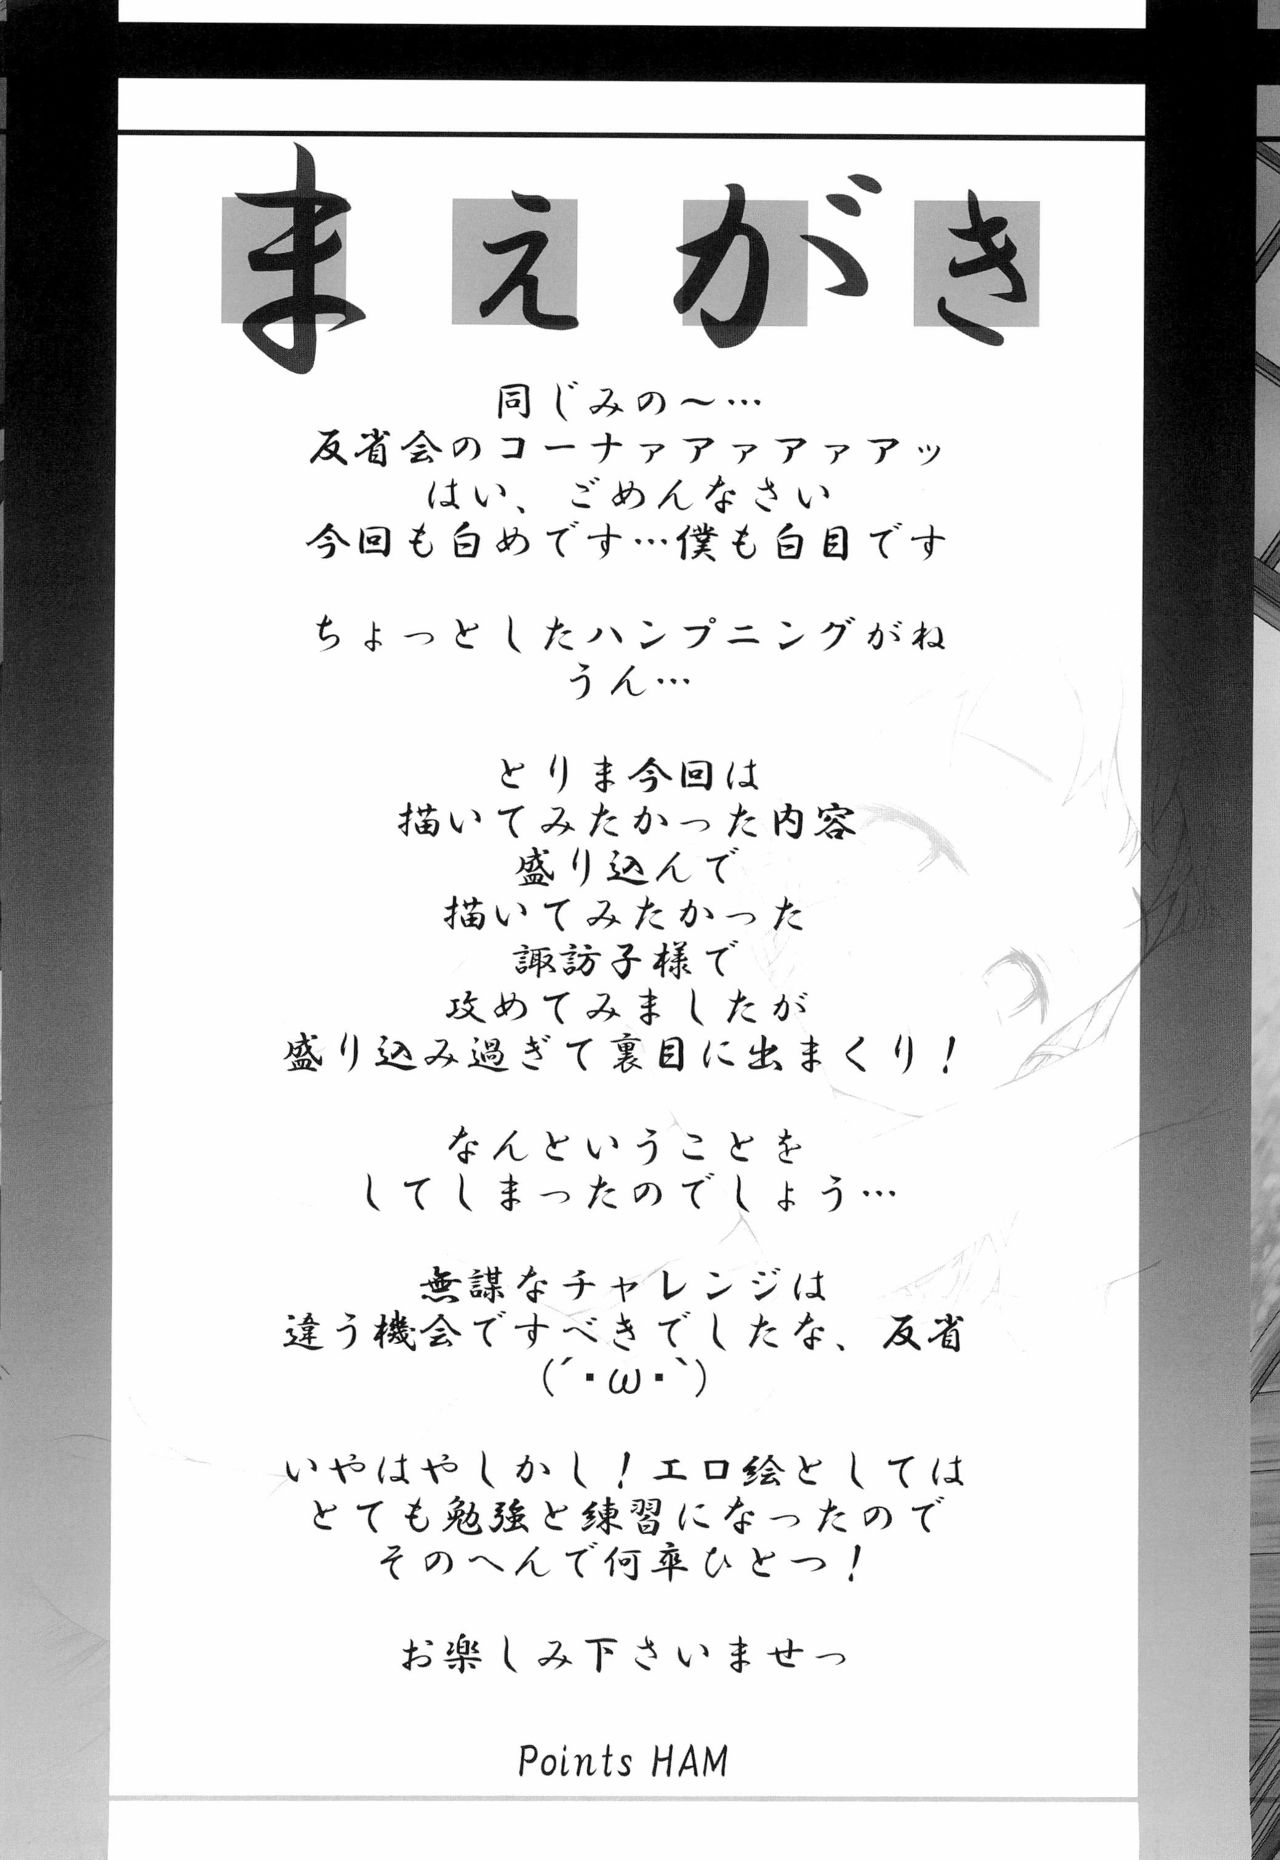 まえがき
同じみの～…
反省会のコーナァアァアァアッ
はい、ごめんなさい
今回も白めです…僕も白目です
ちょっとしたハンプニングがね
うん…
とりま今回は
描いてみたかった内容
盛り込んで
描いてみたかった
諏訪子様で
攻めてみましたが
盛り込み過ぎて裏目に出まくり！
なんということを
してしまったのでしょう…
無謀なチャレンジは
違う機会ですべきでしたな、反省
(´・ω・`)
いやはやしかし！エロ絵としては
とても勉強と練習になったので
そのへんで何卒ひとつ！
お楽しみ下さいませっ
Points HAM